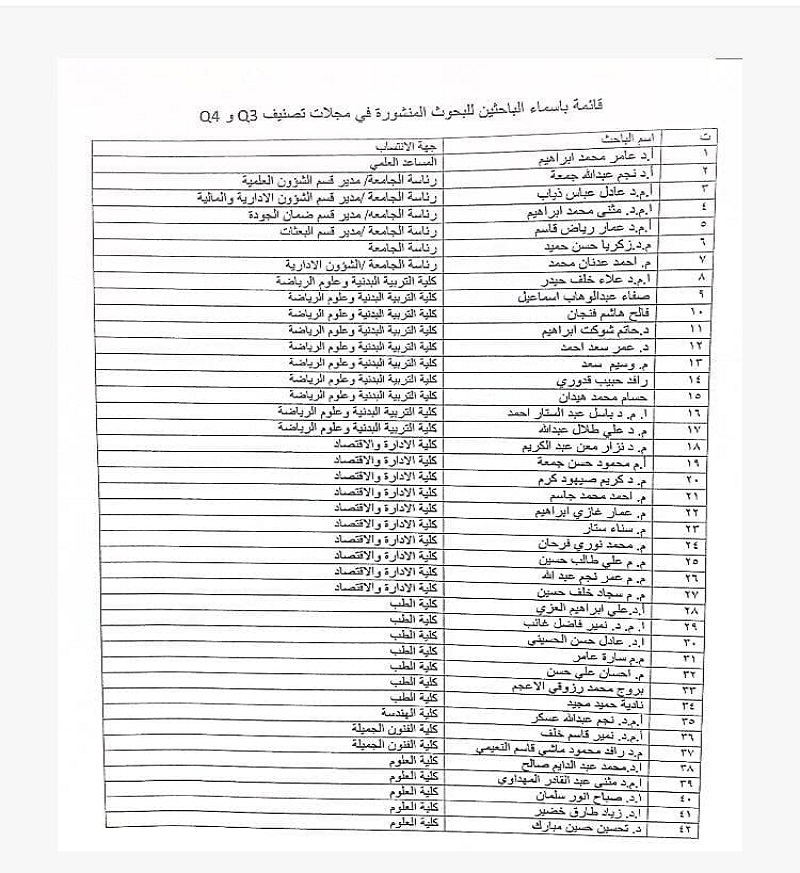 قائمة باسماء الباحثين للبحوث المنشورة في مجلات تصنيف Q3 و Q4
ت اسم الباحث جهة الانتساب
١ أ.د عامر محمد ابراهيم المساعد العلمي
٢ أ.د نجم عبدالله جمعة رئاسة الجامعة/ مدير قسم الشؤون العلمية
٣ أ.م.د عادل عباس ذياب رئاسة الجامعة /مدير قسم الشؤون الادارية والمالية
٤ ا.م.د. مثنى محمد ابراهيم رئاسة الجامعه/ مدير قسم ضمان الجودة
٥ أ.م.د عمار رياض قاسم رئاسة الجامعة /مدير قسم البعثات
٦ م.د.زكريا حسن حميد رئاسة الجامعة
٧ م. احمد عدنان محمد رئاسة الجامعة /الشؤون الادارية
٨ ا.م.د علاء خلف حيدر كلية التربية البدنية وعلوم الرياضة
٩ صفاء عبدالوهاب اسماعيل كلية التربية البدنية وعلوم الرياضة
١٠ فالح هاشم فنجان كلية التربية البدنية وعلوم الرياضة
١١ د.حاتم شوكت ابراهيم كلية التربية البدنية وعلوم الرياضة
١٢ د. عمر سعد احمد كلية التربية البدنية وعلوم الرياضة
١٣ م. وسيم سعد كلية التربية البدنية وعلوم الرياضة
١٤ رافد حبيب قدوري كلية التربية البدنية وعلوم الرياضة
١٥ حسام محمد هيدان كلية التربية البدنية وعلوم الرياضة
١٦ ا. م. د باسل عبد الستار احمد كلية التربية البدنية وعلوم الرياضة
١٧ م. د علي طلال عبدالله كلية التربية البدنية وعلوم الرياضة
١٨ م. د نزار معن عبد الكريم كلية الادارة والاقتصاد
١٩ أ.م محمود حسن جمعة كلية الادارة والاقتصاد
٢٠ م. د كريم صيهود كرم كلية الادارة والاقتصاد
٢١ م. احمد محمد جاسم كلية الادارة والاقتصاد
٢٢ م. عمار غازي ابراهيم كلية الادارة والاقتصاد
٢٣ م. سناء ستار كلية الادارة والاقتصاد
٢٤ م. محمد نوري فرحان كلية الادارة والاقتصاد
٢٥ م. م علي طالب حسين كلية الادارة والاقتصاد
٢٦ م. م عمر نجم عبد الله كلية الادارة والاقتصاد
٢٧ م. م سجاد خلف حسين كلية الادارة والاقتصاد
٢٨ أ.د.علي ابراهيم العزي كلية الطب
٢٩ ا. م. د. نمير فاضل غائب كلية الطب
٣٠ ا.د. عادل حسن الحسيني كلية الطب
٣١ م.م سارة عامر كلية الطب
٣٢ م. احسان علي حسن كلية الطب
٣٣ بروج محمد رزوقي الاعجم كلية الطب
٣٤ نادية حميد مجيد كلية الطب
٣٥ أ.م.د. نجم عبدالله عسكر كلية الهندسة
٣٦ أ.م.د. نمير قاسم خلف كلية الفنون الجميلة
٣٧ م.د رافد محمود ماشي قاسم النعيمي كلية الفنون الجميلة
٣٨ ا.د.محمد عبد الدايم صالح كلية العلوم
٣٩ ا.م.د مثنى عبد القادر المهداوي كلية العلوم
٤٠ ا.د. صباح انور سلمان كلية العلوم
٤١ ا.د. زياد طارق خضير كلية العلوم
٤٢ د. تحسين حسين مبارك كلية العلوم